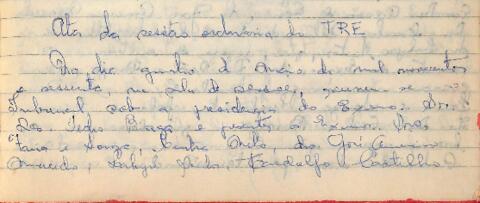 Ata da sessão ordinária do TRE
No dia quinho d Março do mil novecentos
e sessenta, na sala de sessões, reuniu-se
Tribunal sob a presidencia do Exmo. Dr.
Des. Pedro Braga e presentes os Exmos. Drs.
Faria e Souza, Cunha Melo, drs. José Americo
Macedo, Fandolfo Castilho